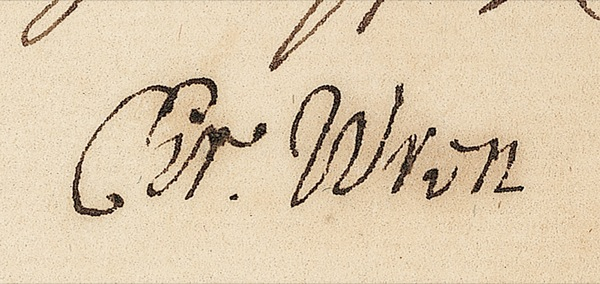 Chr. Wren